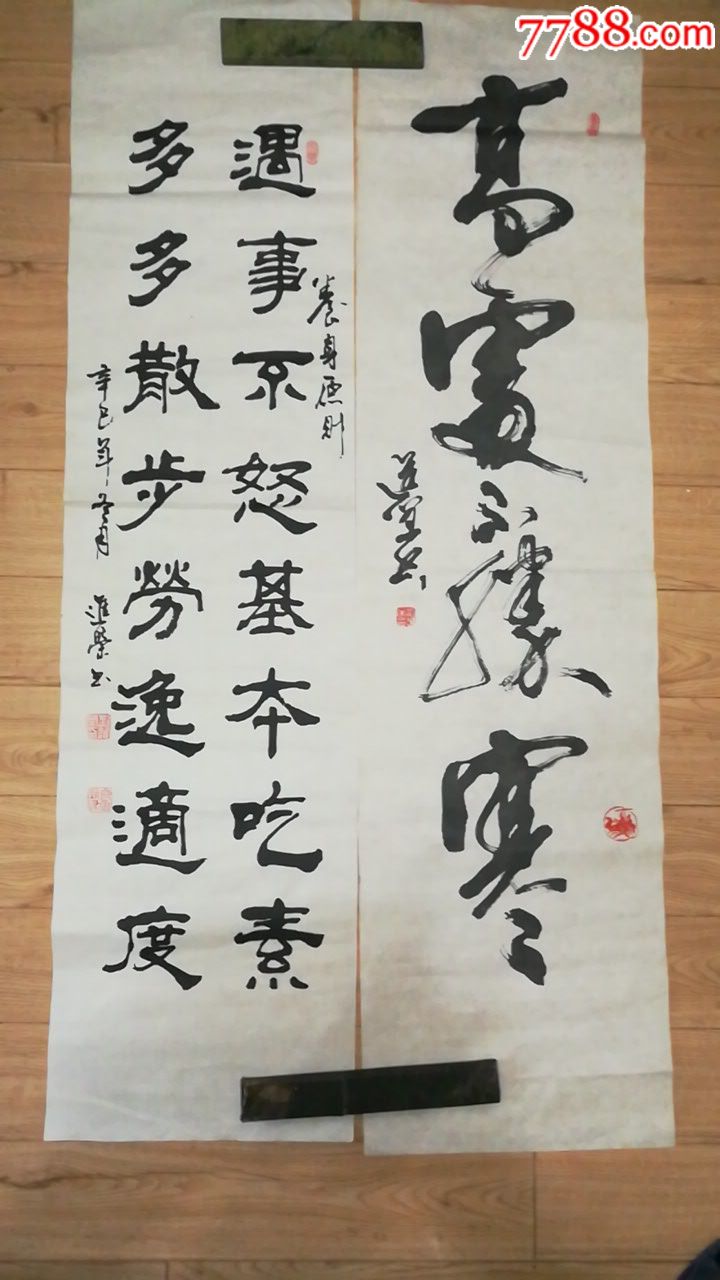 7788.com
高處不勝寒
進榮书
養身原則
遇事不怒基本吃素
多多散步勞逸適度
辛巳年冬月 進榮书